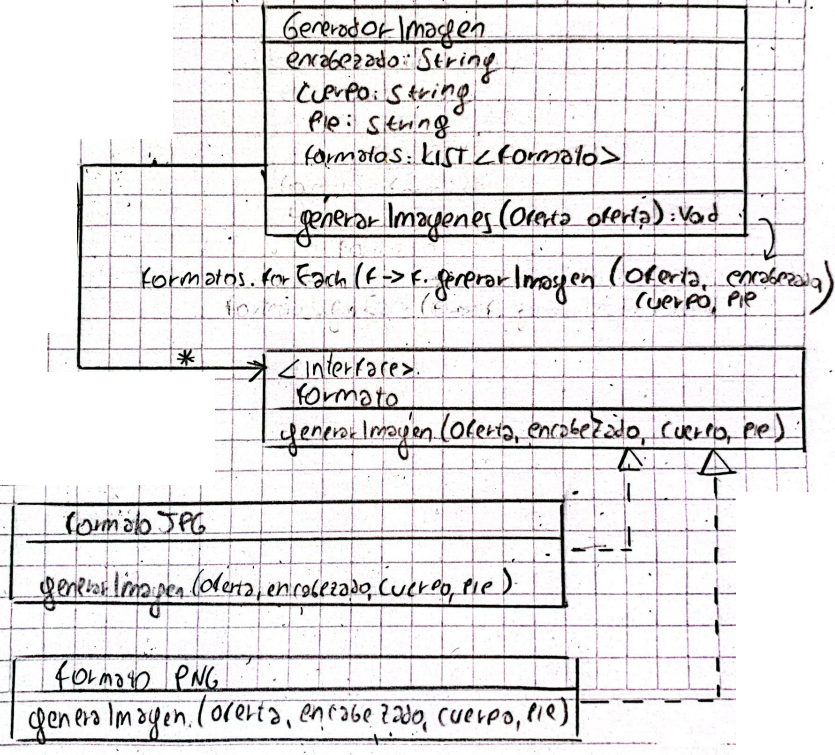 GeneradorImagen
encabezado: String
Cuerpo: String
Pie: String
formatos: LIST <formato>
generarImagenes (Oferta oferta): Void
formatos.forEach (f -> f.generarImagen (Oferta, encabezado,
cuerpo, pie)
*
<interface>.
formato
generarImagen (Oferta, encabezado, cuerpo, pie)
formato JPG
generarImagen (Oferta, encabezado, cuerpo, pie)
formato PNG
generaImagen. (oferta, encabezado, cuerpo, pie)